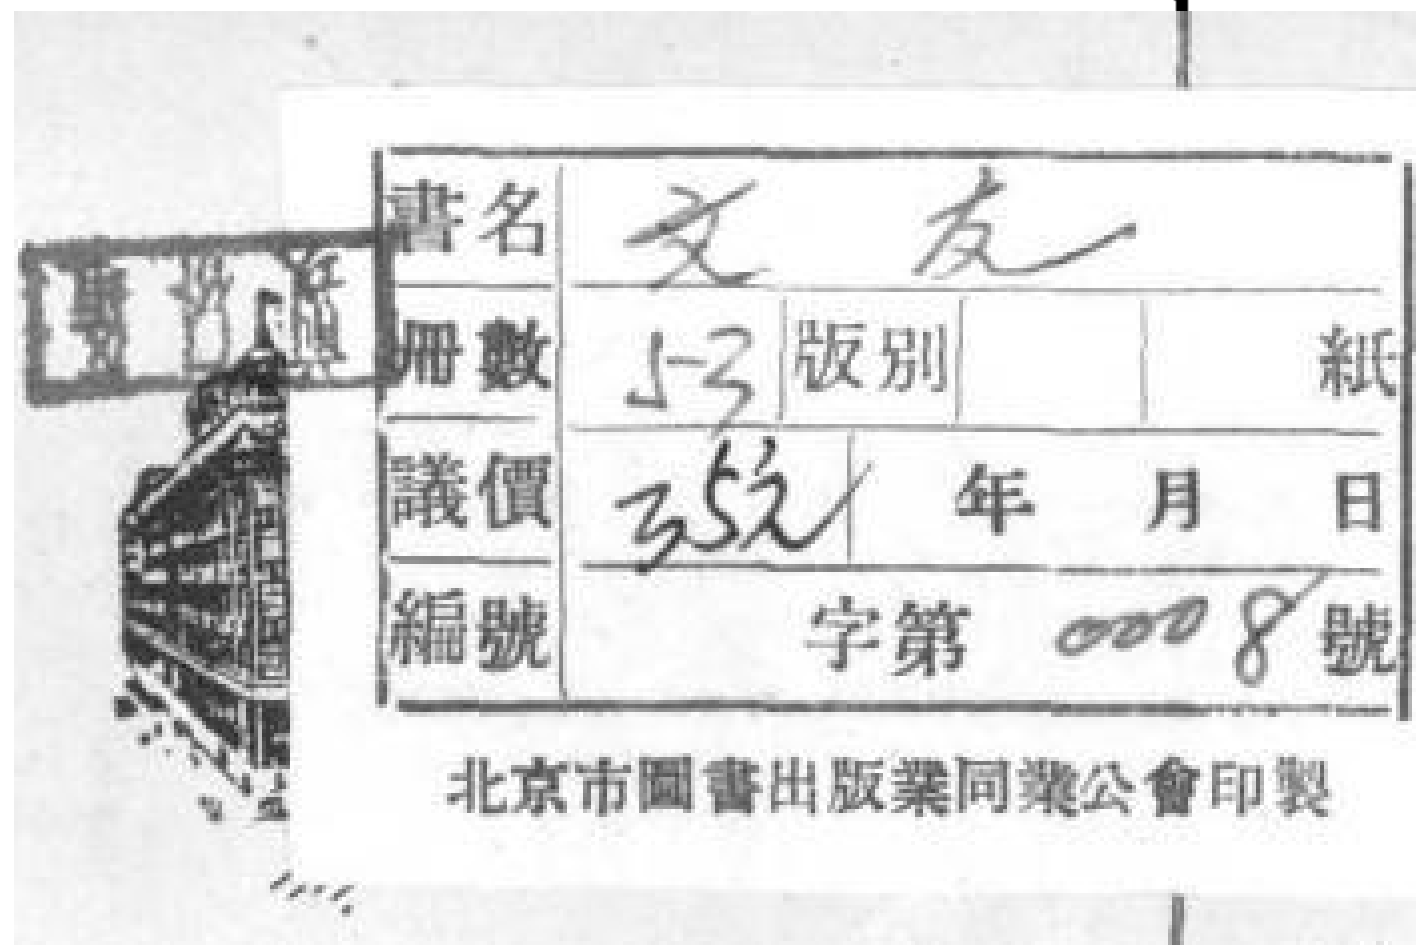 書名 文友
冊數 53 版別 紙
議價 35元 年 月 日
編號 字第 0008 號
北京市圖書出版業同業公會印製